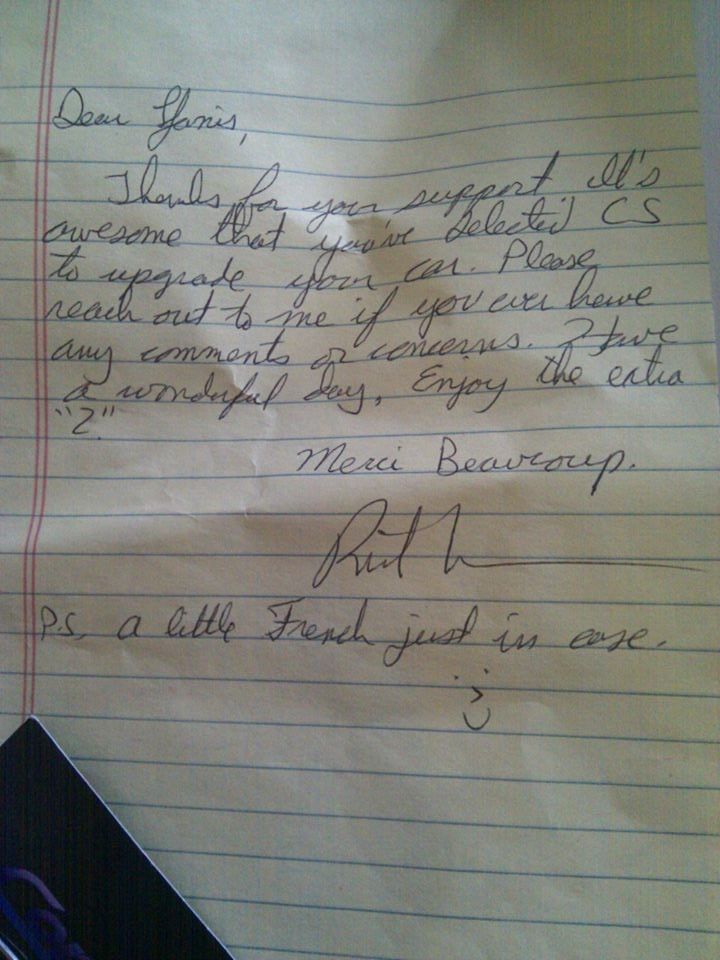 Dear Yanis,
Thanks for your support. It's
awesome that you've selected CS
to upgrade your car. Please
reach out to me if you ever have
any comments or concerns. Have
a wonderful day, Enjoy the extra
"2".
Merci Beaucoup.
P.S. a little French just in case.
:)